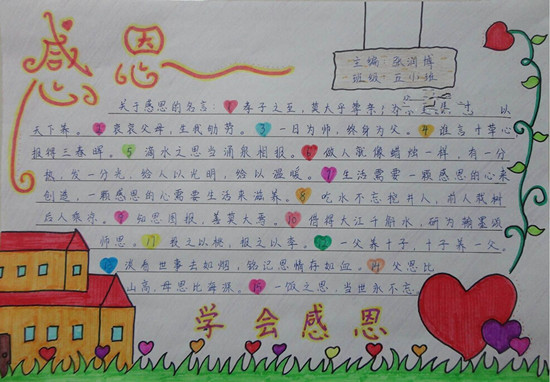 感恩
主编 张润博
班级 五小班
关于感恩的名言：1 孝子之至，莫大乎尊亲；以
天下养。2 哀哀父母，生我劬劳。3 一日为师，终身为父。4 谁言寸草心，
报得三春晖。5 滴水之恩当涌泉相报。6 做人就像蜡烛一样，有一分
热，发一分光，给人以光明，给以温暖。7 生活需要一颗感恩的心来
创造，一颗感恩的心需要生活来滋养。8 吃水不忘挖井人，前人栽树
后人乘凉。9 知恩图报，善莫大焉。10 借得大江千斛水，研为翰墨颂
师恩。11 投之以桃，报之以李。12 一父养十子，十子养一父。
13 淡看世事去如烟，铭记恩情存如血。14 父恩比
山高，母恩比海深。15 一饭之恩，当世永不忘
学会感恩